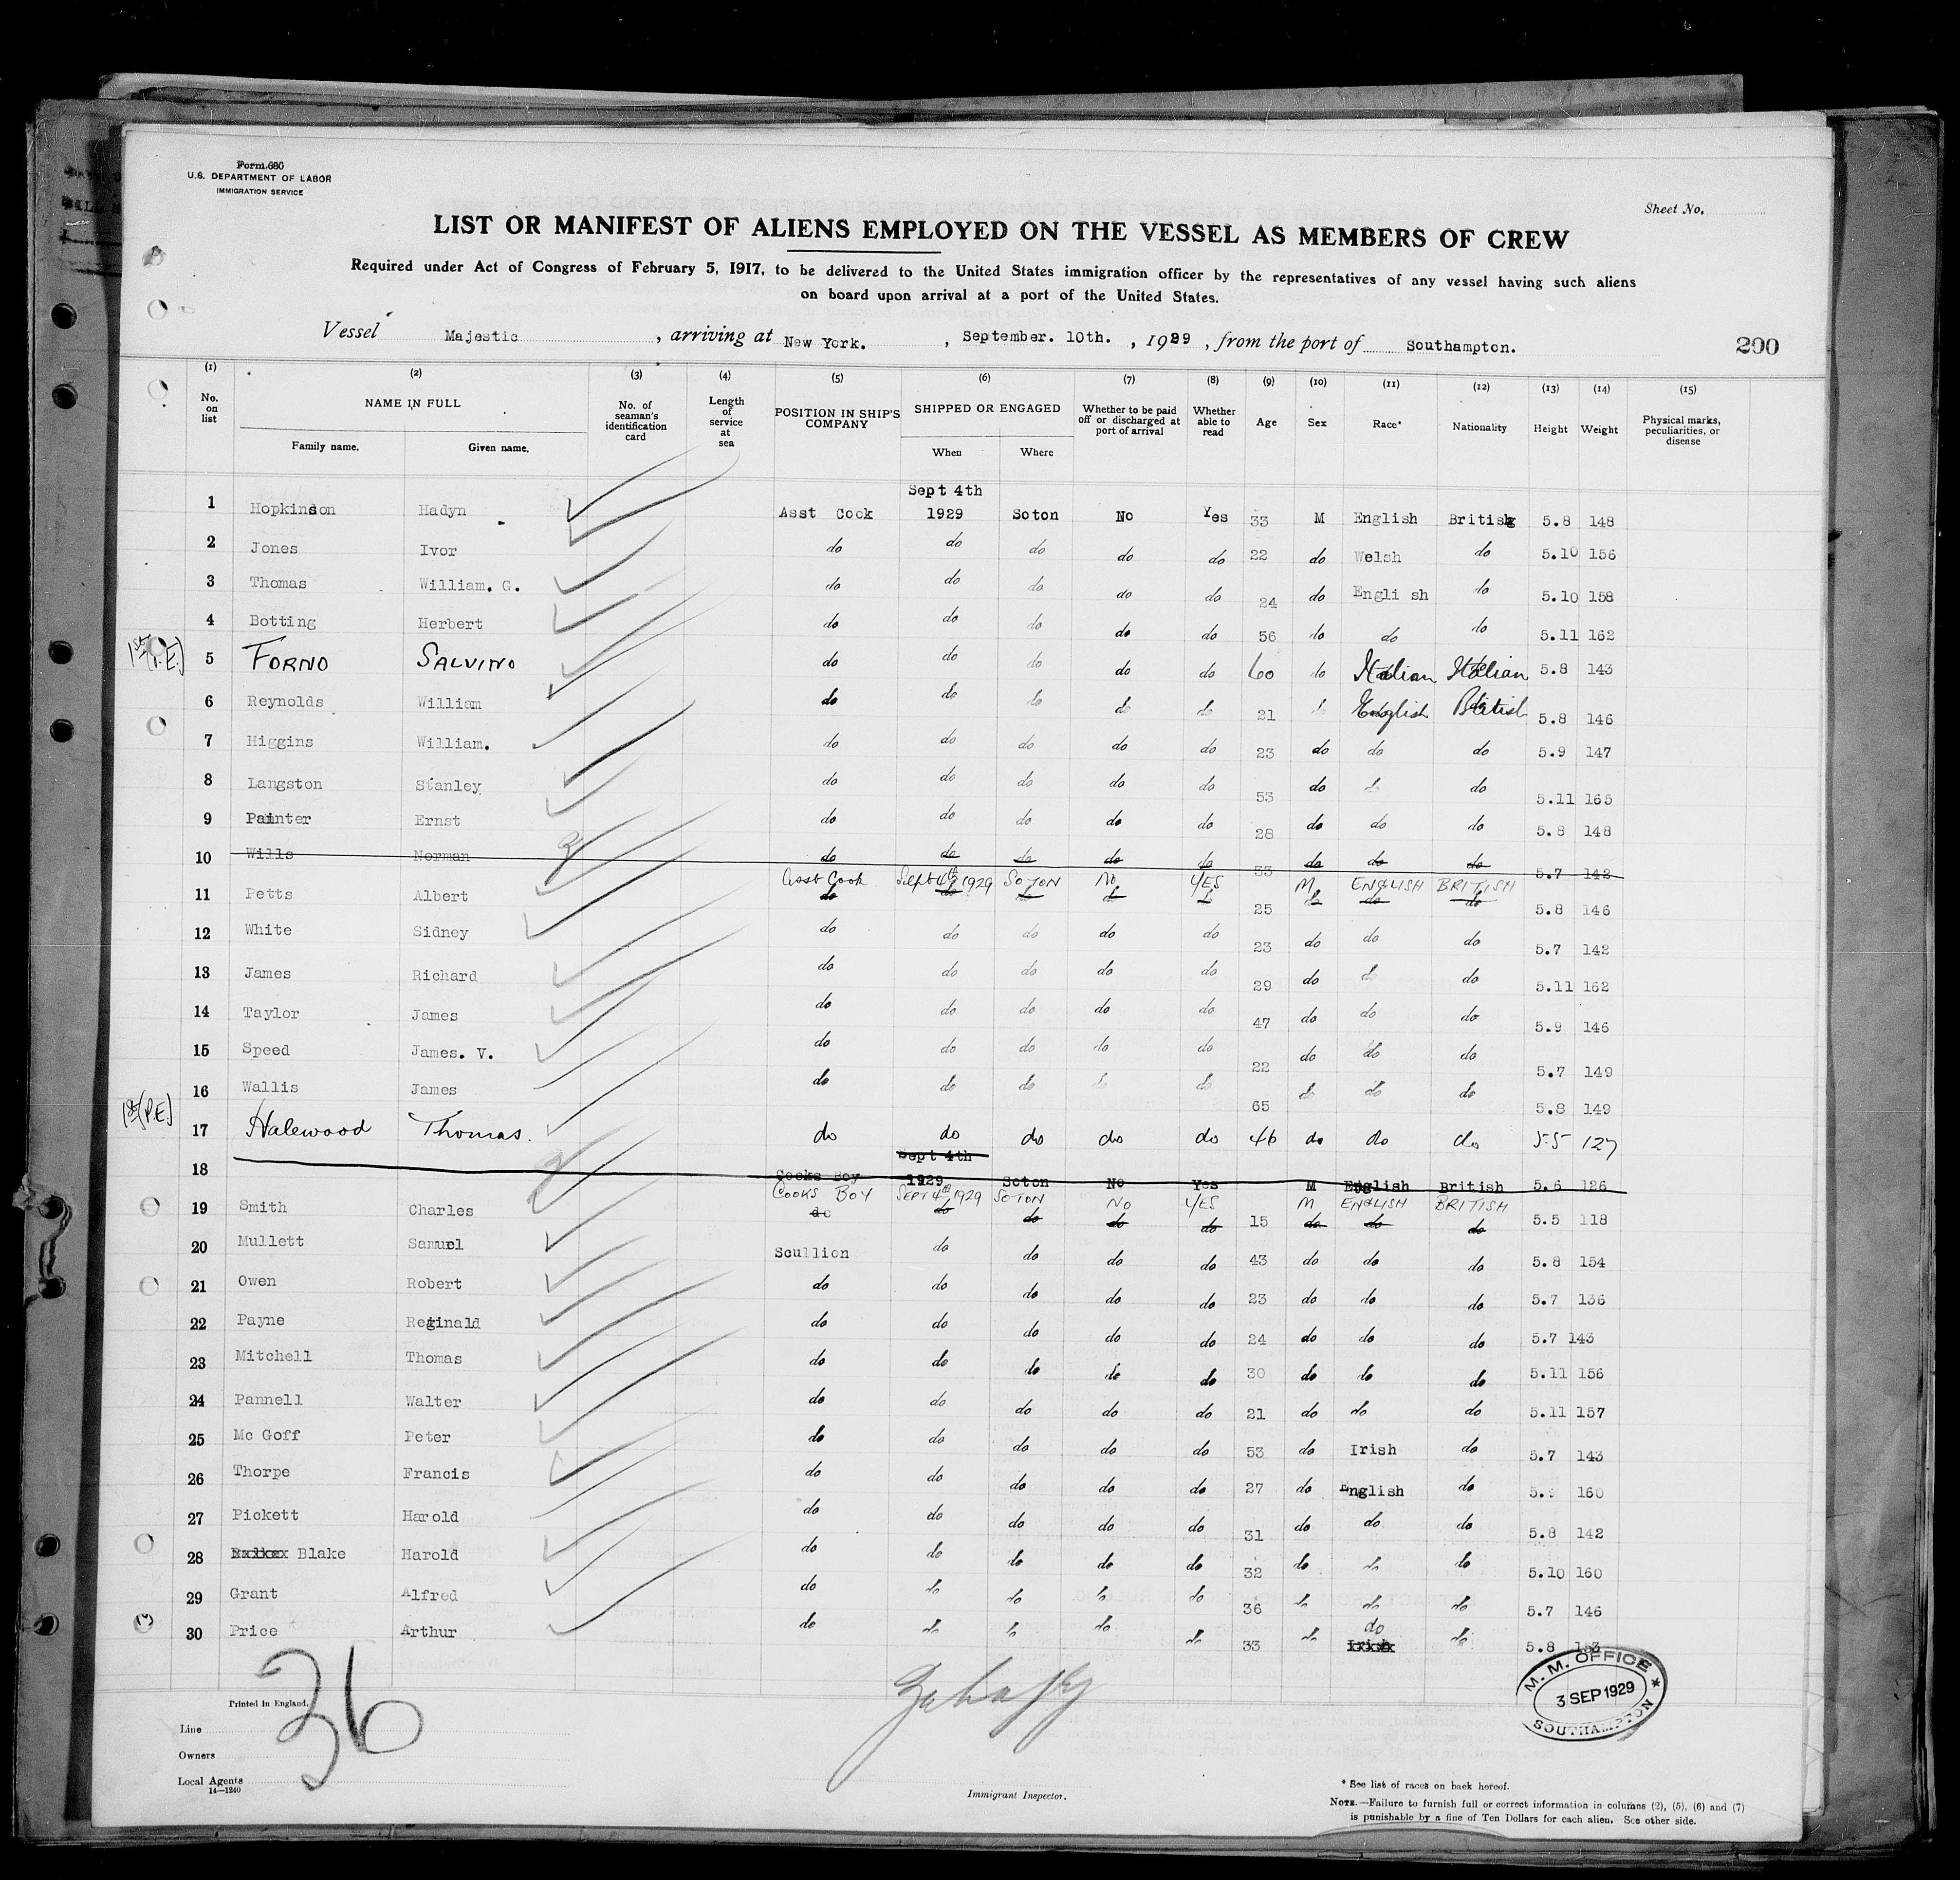 Form 680
U.S. DEPARTMENT OF LABOR
IMMIGRATION SERVICE
Sheet No.
LIST OR MANIFEST OF ALIENS EMPLOYED ON THE VESSEL AS MEMBERS OF CREW
Required under Act of Congress of February 5, 1917, to be delivered to the United States immigration officer by the representatives of any vessel having such aliens
on board upon arrival at a port of the United States.
Vessel Majestic , arriving at New York. , September. 10th. , 1929 , from the port of Southampton. 200
(1) (2) (3) (4) (5) (6) (7) (8) (9) (10) (11) (12) (13) (14) (15)
No. on list NAME IN FULL Family name. Given name. No. of seaman's identification card Length of service at sea POSITION IN SHIP'S COMPANY SHIPPED OR ENGAGED When Where Whether to be paid off or discharged at port of arrival Whether able to read Age Sex Race* Nationality Height Weight Physical marks, peculiarities, or disease
Sept 4th
1 Hopkinson Hadyn Asst Cook 1929 Soton No Yes 33 M English British 5.8 148
2 Jones Ivor do do do do do 22 do Welsh do 5.10 156
3 Thomas William. G. do do do do do 24 do English do 5.10 158
4 Botting Herbert do do do do do 56 do do do 5.11 162
1st (P.E.) 5 FORNO SALVINO do do do do do 60 do Italian Italian 5.8 143
6 Reynolds William do do do do do 21 do English British 5.8 146
7 Higgins William. do do do do do 23 do do do 5.9 147
8 Langston Stanley do do do do do 53 do do do 5.11 165
9 Painter Ernst do do do do do 28 do do do 5.8 148
10 Wills Norman do do do do do 33 do do do 5.7 142
Asst Cook Sept 4th 1929 SOTON No YES M ENGLISH BRITISH
11 Petts Albert do do do do do 25 do do do 5.8 146
12 White Sidney do do do do do 23 do do do 5.7 142
13 James Richard do do do do do 29 do do do 5.11 162
14 Taylor James do do do do do 47 do do do 5.9 146
15 Speed James. V. do do do do do 22 do do do 5.7 149
16 Wallis James do do do do do 65 do do do 5.8 149
1st (P.E.) 17 Halewood Thomas. do do do do do 46 do do do 5.5 127
Sept 4th
18 Cooks Boy 1929 Soton No Yes M English British 5.6 126
COOKS BOY SEPT 4th 1929 SOTON NO YES M ENGLISH BRITISH
19 Smith Charles do do do do do 15 do do do 5.5 118
20 Mullett Samuel Scullion do do do do 43 do do do 5.8 154
21 Owen Robert do do do do do 23 do do do 5.7 136
22 Payne Reginald do do do do do 24 do do do 5.7 143
23 Mitchell Thomas do do do do do 30 do do do 5.11 156
24 Pannell Walter do do do do do 21 do do do 5.11 157
25 Mc Goff Peter do do do do do 53 do Irish do 5.7 143
26 Thorpe Francis do do do do do 27 do English do 160
27 Pickett Harold do do do do do 31 do do do 5.8 142
28 Blake Harold do do do do do 32 do do do 5.10 160
29 Grant Alfred do do do do do 36 do do do 5.7 146
30 Price Arthur do do do do do 33 do do do 5.8 153
Irish
36
Printed in England.
Line
Owners
Local Agents
14—1240
Immigrant Inspector.
M. M. OFFICE
3 SEP 1929
SOUTHAMPTON
* See list of races on back hereof.
NOTE.—Failure to furnish full or correct information in columns (2), (5), (6) and (7)
is punishable by a fine of Ten Dollars for each alien. See other side.